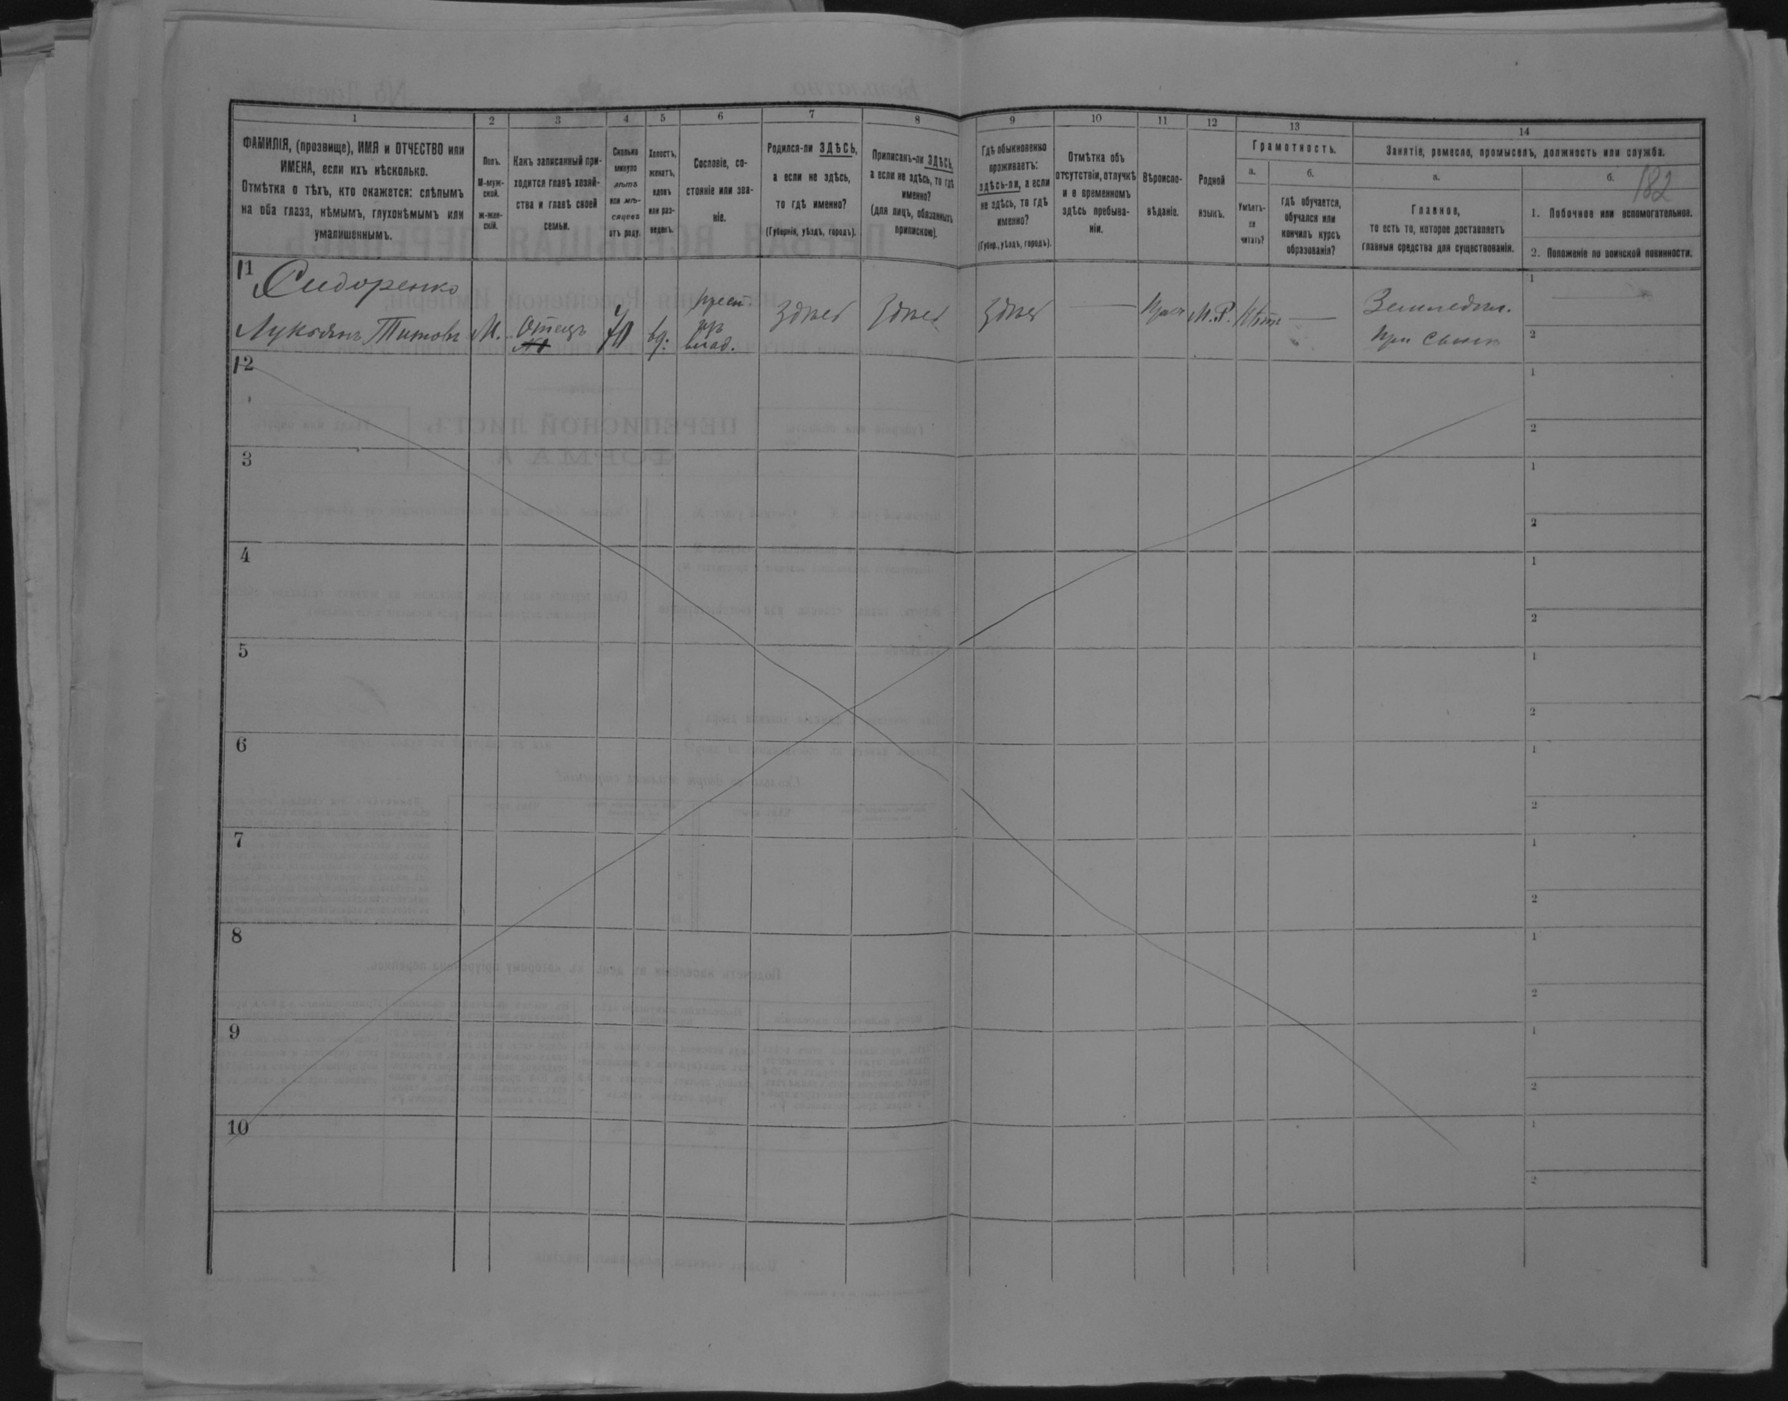 182
1 2 3 4 5 6 7 8 9 10 11 12 13 14
ФАМИЛІЯ, (прозвище), ИМЯ и ОТЧЕСТВО или
ИМЕНА, если ихъ нѣсколько.
Отмѣтка о тѣхъ, кто окажется: слѣпымъ
на оба глаза, нѣмымъ, глухонѣмымъ или
умалишоннымъ.
Полъ.
М-муж-
ской.
ж-жен-
скій.
Какъ записанный при-
ходится главѣ хозяй-
ства и главѣ своей
семьи.
Сколько
минуло
лѣтъ
или мѣ-
сяцевъ
отъ роду.
Холостъ,
женатъ,
вдовъ
или раз-
веденъ.
Сословіе, со-
стояніе или зва-
ніе.
Родился-ли ЗДѢСЬ,
а если не здѣсь,
то гдѣ именно?
(Губернія, уѣздъ, городъ).
Приписанъ-ли ЗДѢСЬ,
а если не здѣсь, то гдѣ
именно?
(для лицъ, обязанныхъ
припискою).
Гдѣ обыкновенно
проживаетъ:
здѣсь-ли, а если
не здѣсь, то гдѣ
именно?
(Губер., уѣздъ, городъ).
Отмѣтка объ
отсутствіи, отлучкѣ
и о временномъ
здѣсь пребыва-
ніи.
Вѣроиспо-
вѣданіе.
Родной
языкъ.
Грамотность.
а.
Умѣетъ-
ли
читать?
б.
гдѣ обучается,
обучался или
кончилъ курсъ
образованія?
Занятіе, ремесло, промыселъ, должность или служба.
а.
Главное,
то есть то, которое доставляетъ
главныя средства для существованія.
б.
1. Побочное или вспомогательное.
2. Положеніе по воинской повинности.
11
Сидоренко
Лукьянъ Титовъ М. Отецъ 70 вд. крест. Здѣсь Здѣсь Здѣсь — Прав. М.Р. Нѣтъ —
влад.
Земледѣл.
При сынѣ
1
2
12
1
2
3
1
2
4
1
2
5
1
2
6
1
2
7
1
2
8
1
2
9
1
2
10
1
2